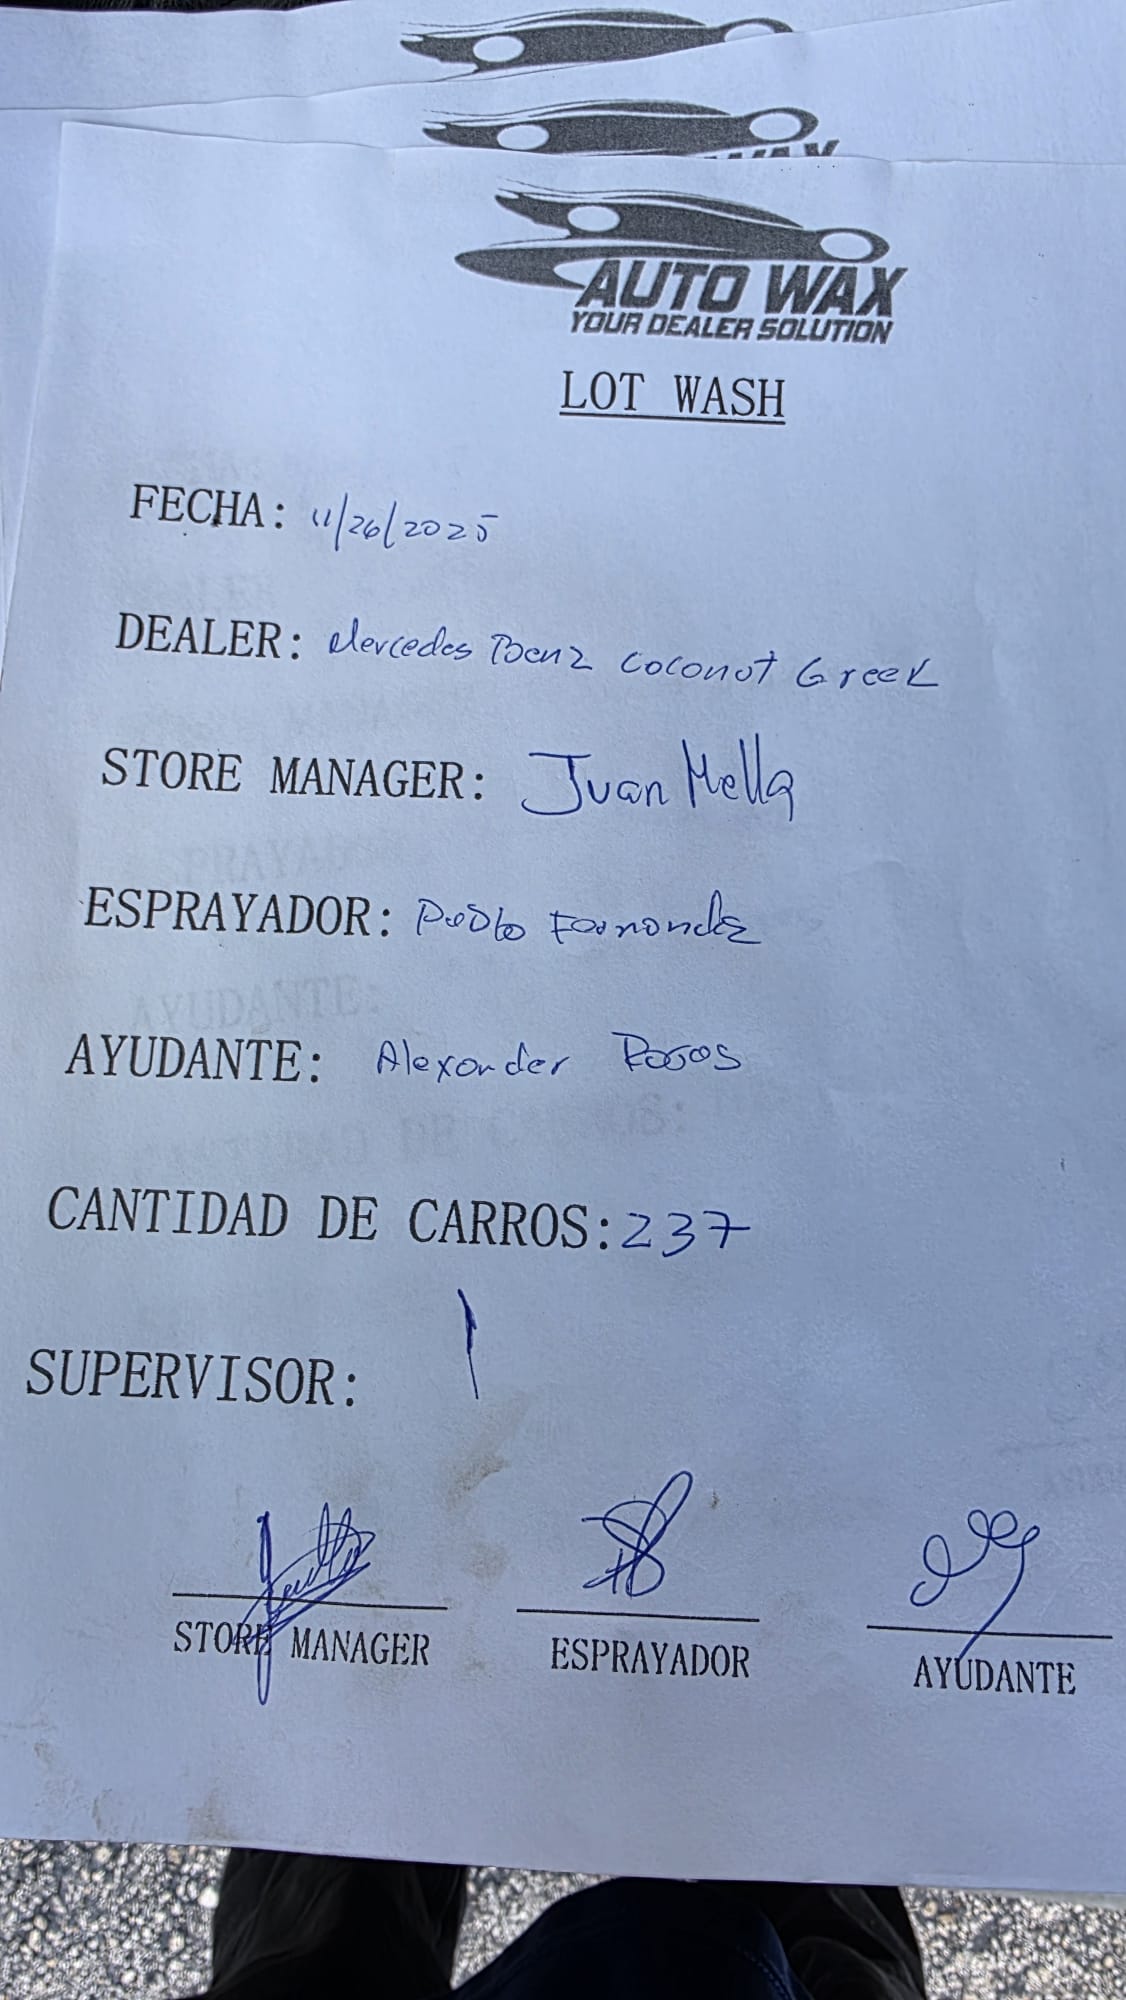 WAX
AUTO WAX
YOUR DEALER SOLUTION
LOT WASH
FECHA: 11/26/2025
DEALER: Mercedes Benz Coconot Greek
STORE MANAGER: Juan Mella
ESPRAYADOR: Pablo Fernandez
AYUDANTE: Alexander
CANTIDAD DE CARROS: 237
SUPERVISOR:
STORE MANAGER ESPRAYADOR AYUDANTE